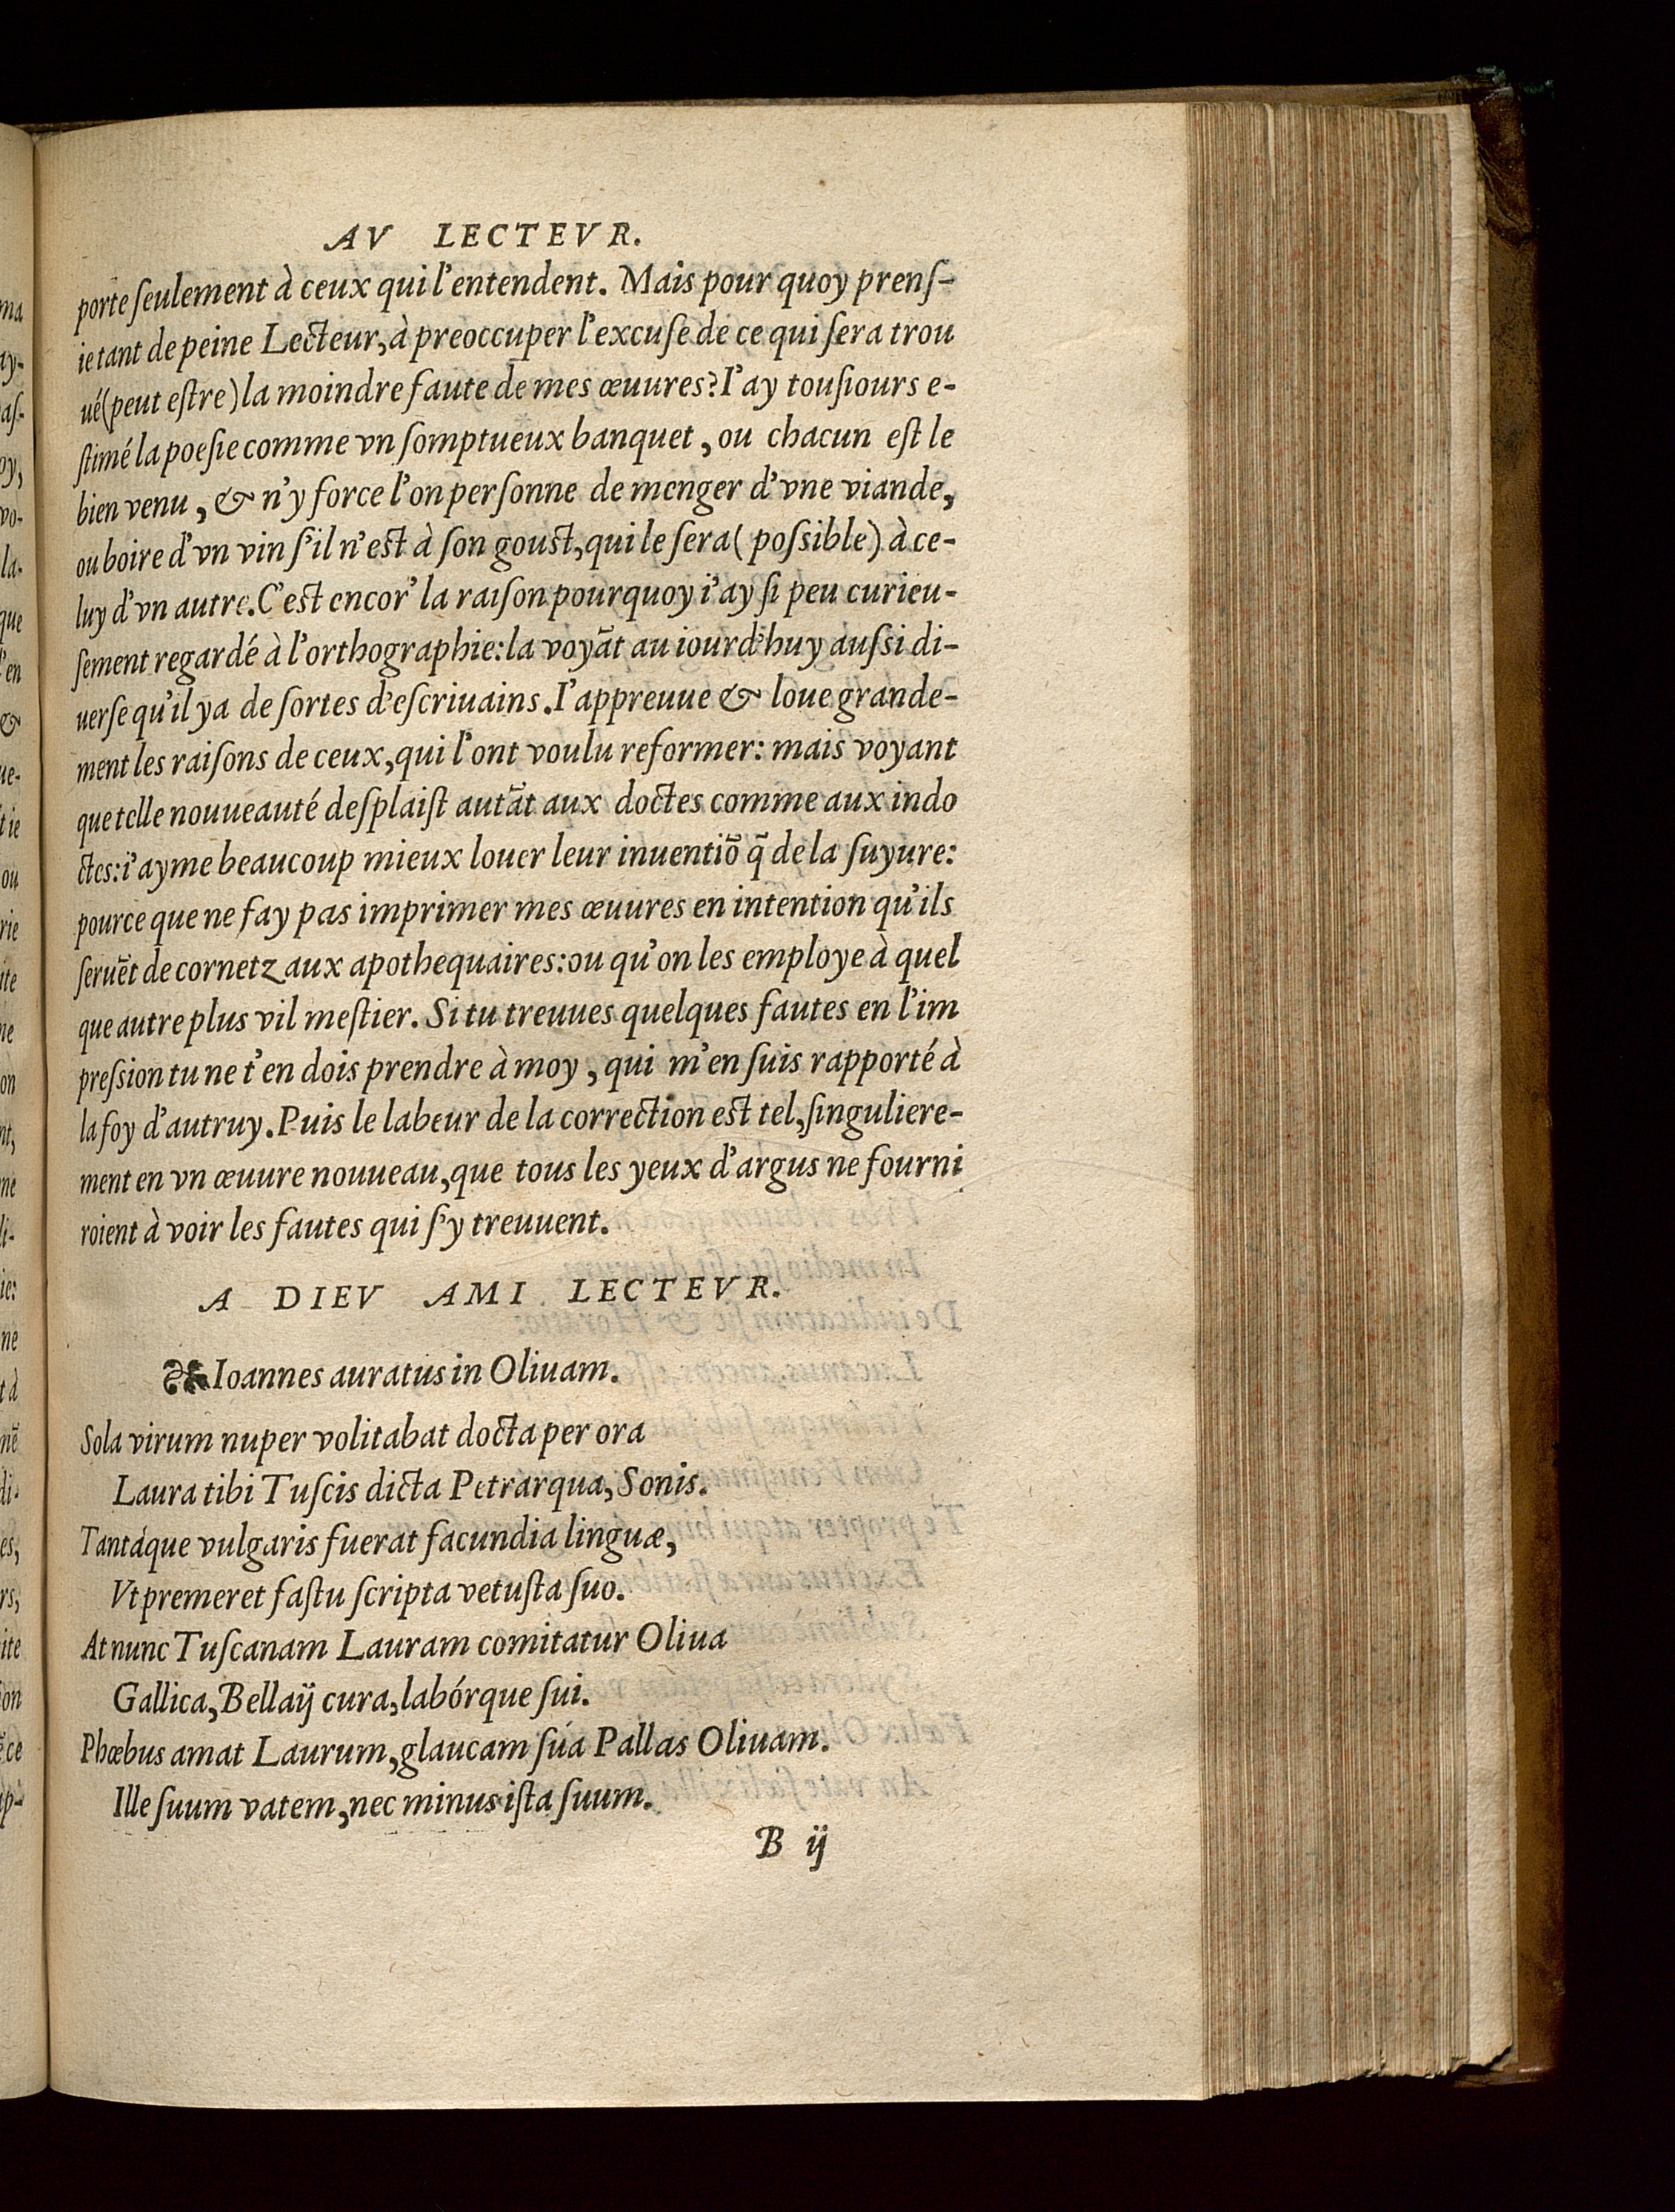 AV LECTEVR.
porte ſeulement à ceux qui l'entendent. Mais pour quoy prenſ-
ie tant de peine Lecteur, à preoccuper l'excuſe de ce qui ſera trou
ué (peut eſtre) la moindre faute de mes œuures? I'ay touſiours e-
ſtimé la poeſie comme vn ſomptueux banquet, ou chacun eſt le
bien venu, & n'y force l'on perſonne de menger d'vne viande,
ou boire d'vn vin ſ'il n'est à ſon goust, qui le ſera (poſsible) à ce-
luy d'vn autre. C'est encor' la raiſon pourquoy i'ay ſi peu curieu-
ſement regardé à l'orthographie: la voyãt au iourd'huy auſsi di-
uerſe qu'il ya de ſortes d'eſcriuains. I'appreuue & loue grande-
ment les raiſons de ceux, qui l'ont voulu reformer: mais voyant
que telle nouueauté deſplaiſt autãt aux doctes comme aux indo
ctes: i'ayme beaucoup mieux louer leur inuentiõ q̃ de la ſuyure:
pource que ne fay pas imprimer mes œuures en intention qu'ils
ſeruẽt de cornetz aux apothequaires: ou qu'on les employe à quel
que autre plus vil meſtier. Si tu treuues quelques fautes en l'im
preſsion tu ne t'en dois prendre à moy, qui m'en ſuis rapporté à
la foy d'autruy. Puis le labeur de la correction est tel, ſinguliere-
ment en vn œuure nouueau, que tous les yeux d'argus ne fourni
roient à voir les fautes qui ſ'y treuuent.
A DIEV AMI LECTEVR.
❧ Ioannes auratus in Oliuam.
Sola virum nuper volitabat docta per ora
Laura tibi Tuſcis dicta Petrarqua, Sonis.
Tantáque vulgaris fuerat facundia linguæ,
Vt premeret faſtu ſcripta vetuſta ſuo.
At nunc Tuſcanam Lauram comitatur Oliua
Gallica, Bellaij cura, labórque ſui.
Phœbus amat Laurum, glaucam ſúa Pallas Oliuam.
Ille ſuum vatem, nec minus iſta ſuum.
B ij